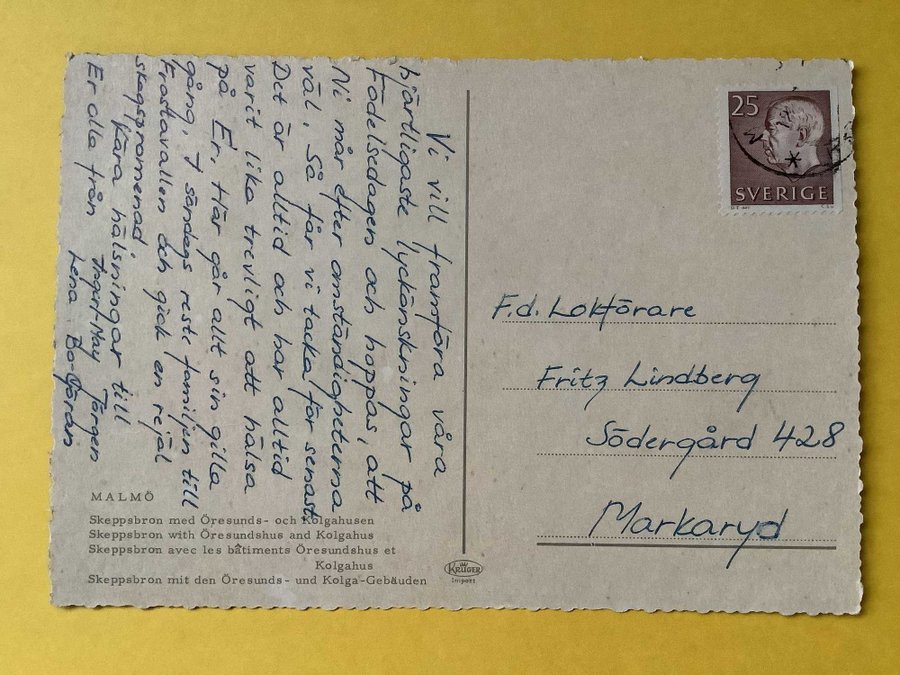 Vi vill framföra våra
hjärtligaste lyckönskningar på
Födelsedagen och hoppas, att
Ni mår efter omständigheterna
väl. Så får vi tacka för senast.
Det är alltid och har alltid
varit lika trevligt att hälsa
på Er. Här går allt sin gilla
gång, I söndags reste familjen till
Frostavallen och gick en rejäl
skogspromenad
Kära hälsningar till
Er alla från Ingert-May Jörgen
Lena Bo-Göran
MALMÖ
Skeppsbron med Öresunds- och Kolgahusen
Skeppsbron with Öresundshus and Kolgahus
Skeppsbron avec les bâtiments Öresundshus et
Kolgahus
Skeppsbron mit den Öresunds- und Kolga-Gebäuden
KRÜGER
Import
25
SVERIGE
F.d. Lokförare
Fritz Lindberg
Södergård 428
Markaryd